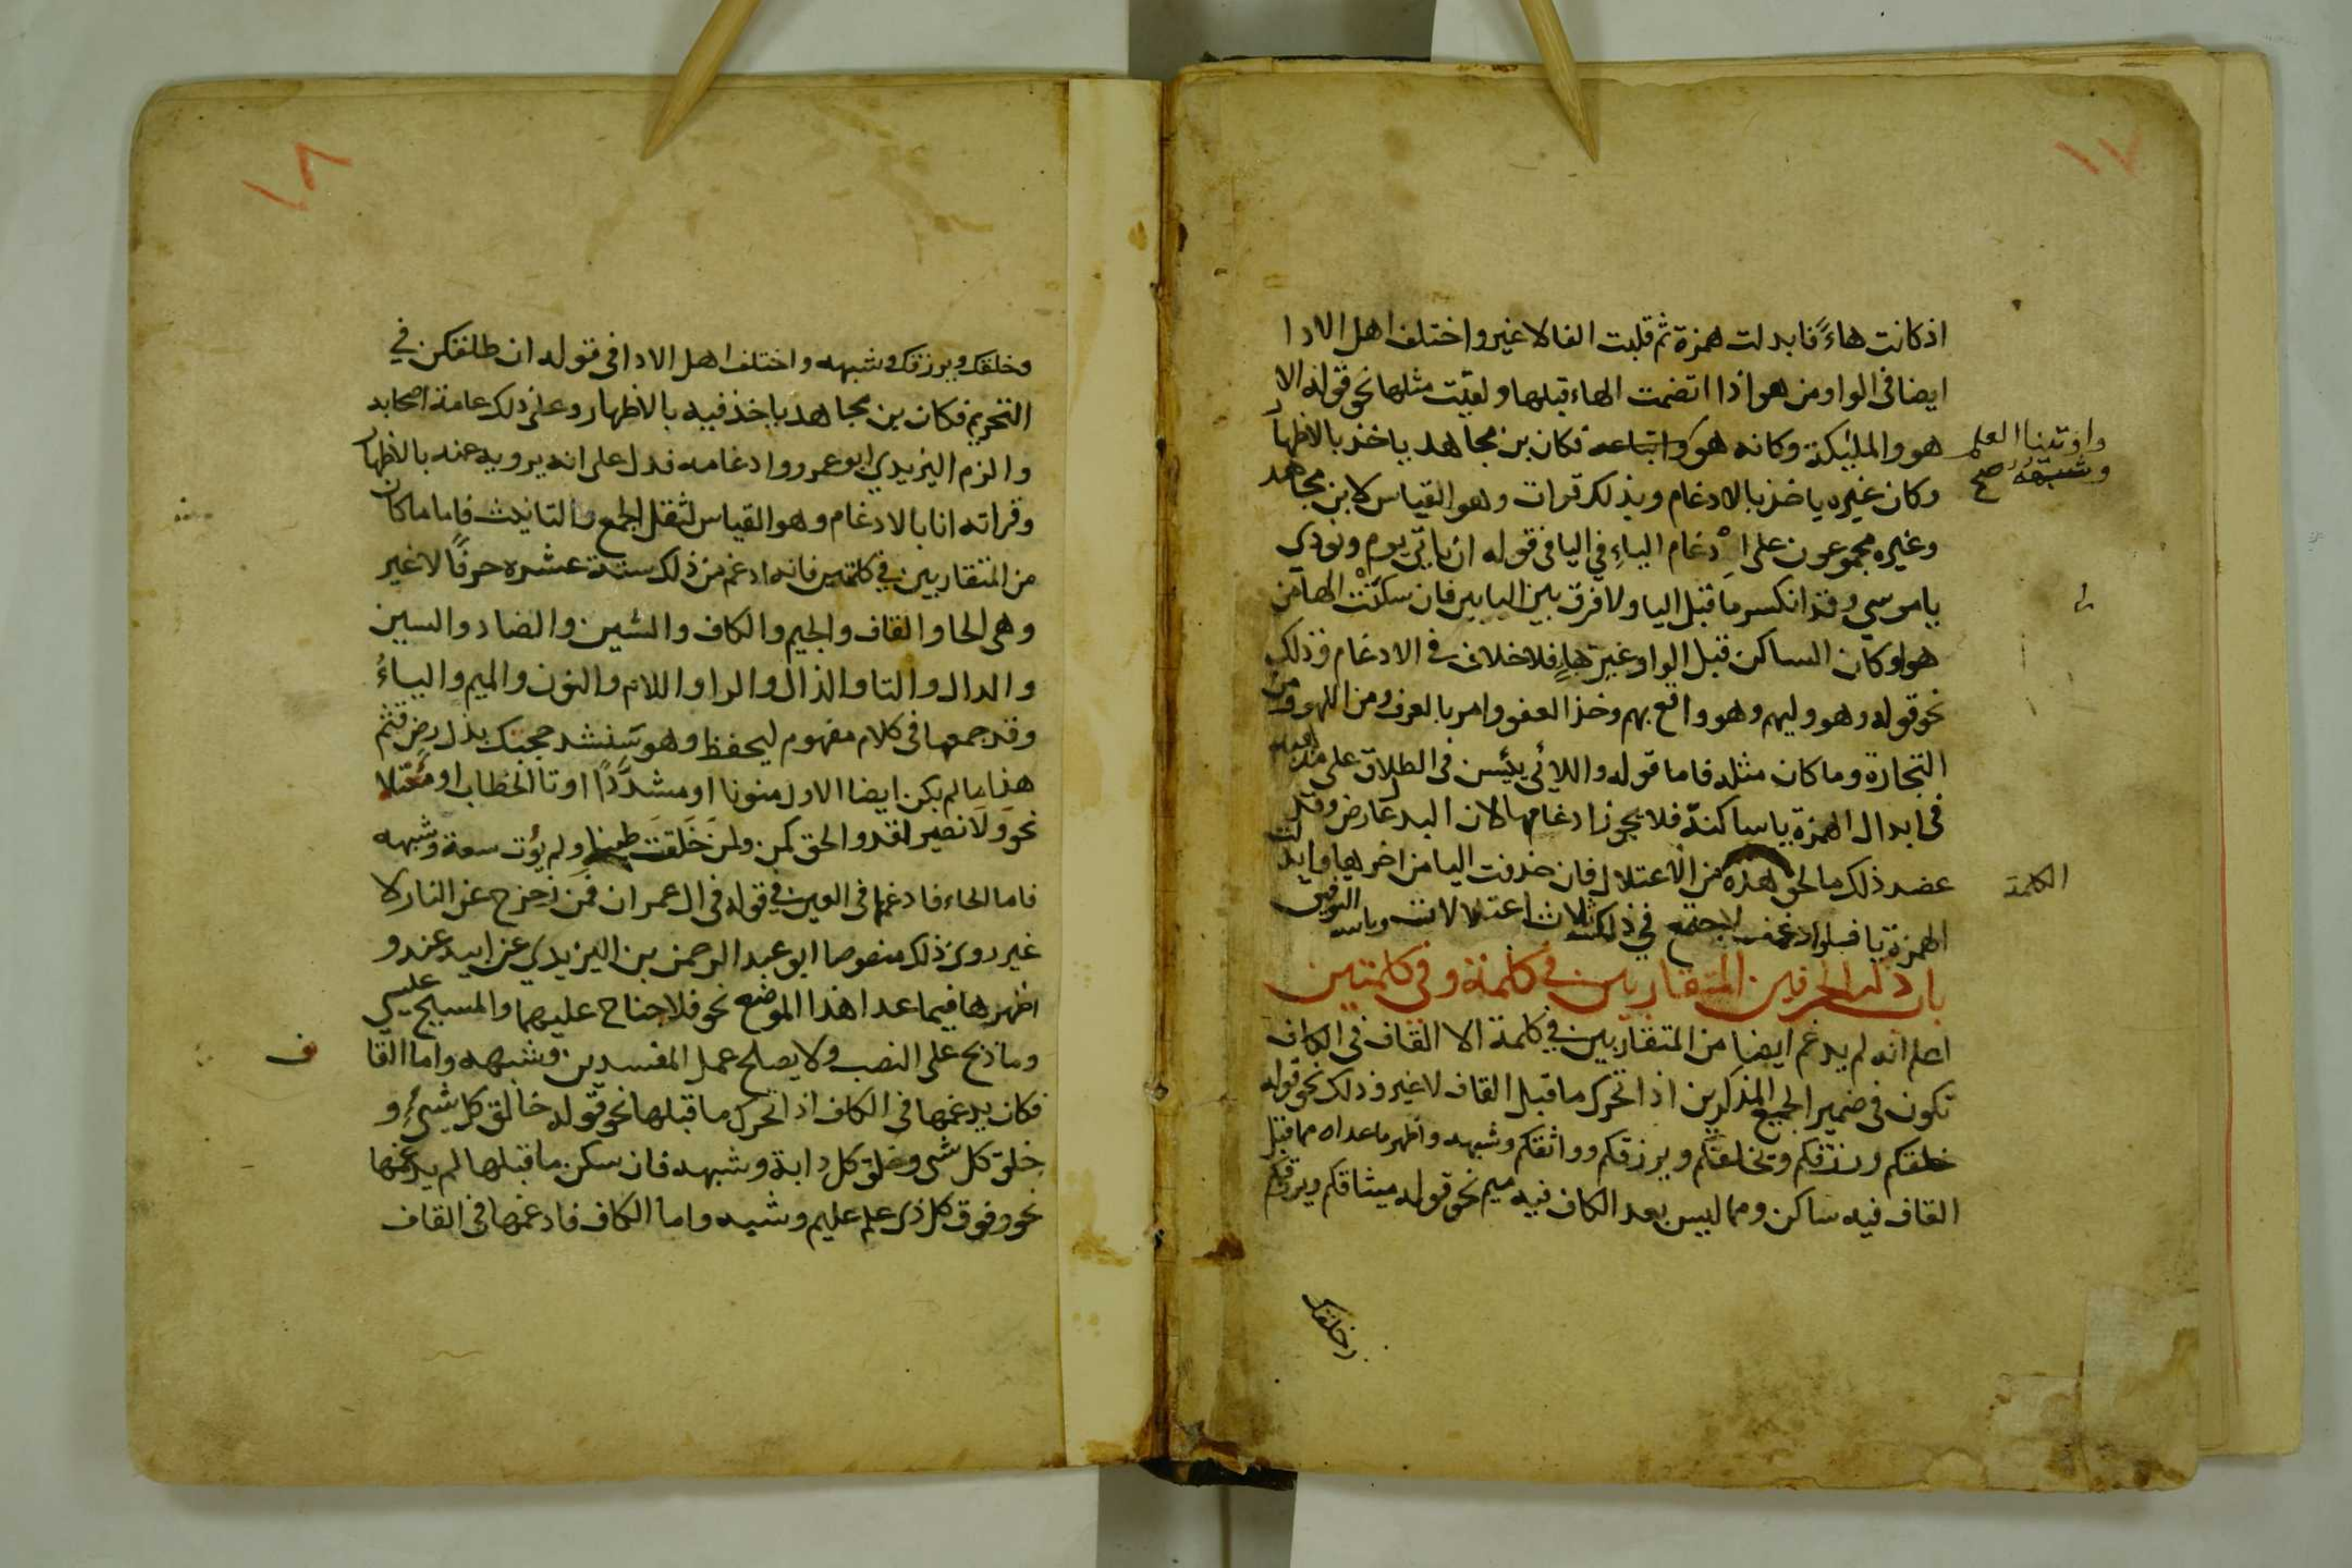 ١٧
اذ كانت هاءً فابدلت همزة ثم قلبت الفا لا غير واختلف اهل الادا
ايضا فى الواو من هو اذا انضمت الهاء قبلها ولقيت مثلها نحو قوله الا
هو والمليكة وكانه هو فكان بن مجاهد ياخذ بالاظهار
واوتينا العلم
وشبهه صح
وكان غيره ياخذ بالادغام وبذلك قرات وهو القياس لان بن مجاهد
وغيره مجموعون على ادغام الياءِ في اليا فى قوله ان ياتى يوم ونودي
ياموسي وقد انكسر ما قبل اليا ولا فرق بين اليايين فان سكنَتْ الها من
هو او كان الساكن قبل الواو غير هاءٍ فلا خلاف فى الادغام وذلك
نحو قوله وهو وليهم وهو واقع بهم وخذ العفو وامر بالعرف ومن اللهو ومن
التجارة وما كان مثله فاما قوله واللائى يئسن فى الطلاق على مذهبه
فى ابدال الهمزة ياساكنة فلا يجوز ادغامها لان البدل عارض وقد
عضد ذلك ما لحق هذه من الاعتلال فان حذفت اليا من اخرها وابدلت
الكلمة
الهمزة يا فلو ادغمت لاجتمع في ذلك ثلاث اعتلالات وبالله التوفيق
باب ذكر الحرفين المتقاربين في كلمة وفي كلمتين
اعلم انه لم يدغم ايضا من المتقاربين في كلمة الا القاف فى الكاف
تكون فى ضمير الجميع المذكرين اذا تحرك ما قبل القاف لا غير وذلك نحو قوله
خلقكم ورزقكم ويخلقكم ويرزقكم وواثقكم وشبهه واظهر ما عداه مما قبل
القاف فيه ساكن ومما ليس بعد الكاف فيه ميم نحو قوله ميثاقكم وبورقكم
وخلقك
١٨
وخلقك ويرزقك وشبهه واختلف اهل الادا فى قوله ان طلقكن في
التحريم فكان بن مجاهد ياخذ فيه بالاظهار وعلى ذلك عامة اصحابه
والزم اليزيدي ابو عمرو وادغامه فدل على انه يرويه عنه بالاظهار
وقراته انا بالادغام وهو القياس لثقل الجمع والتانيث فاما ما كان
من المتقاربين في كلمتين فانه ادغم من ذلك ستة عشره حرفًا لا غير
وهى الحا والقاف والجيم والكاف والشين والضاد والسين
والدال والتا والذال والرا واللام والنون والميم والباءُ
وقد جمعها فى كلام مفهوم ليحفظ وهو سنشد حجتك بذل رض قثم
هذا ما لم يكن ايضا الاول منونا او مشدَّدًا او تا الخطاب او مُعْتلا
نحو ولا نصير لقد والحق كمن ولمن خَلَقتَ طينا ولم يُوت سعة وشبهه
فاما الحاء فادغمها فى العين في قوله فى ال عمران فمن زحزح عن النار لا
غير روى ذلك منصوصا ابو عبد الرحمن بن اليزيدي عن ابيه عنه و
اظهرها فيما عدا هذا الموضع نحو فلا جناح عليهما والمسيح عيسي
وما ذبح على النصب ولا يصلح عمل المفسدين وشبهه واما القا
ف
فكان يدغمها فى الكاف اذا تحرك ما قبلها نحو قوله خالق كل شىءٍ و
خلق كل شى وخلق كل دابة وشبهه فان سكن ما قبلها لم يدغمها
نحو وفوق كل ذى علم عليم وشبهه واما الكاف فادغمها فى القاف